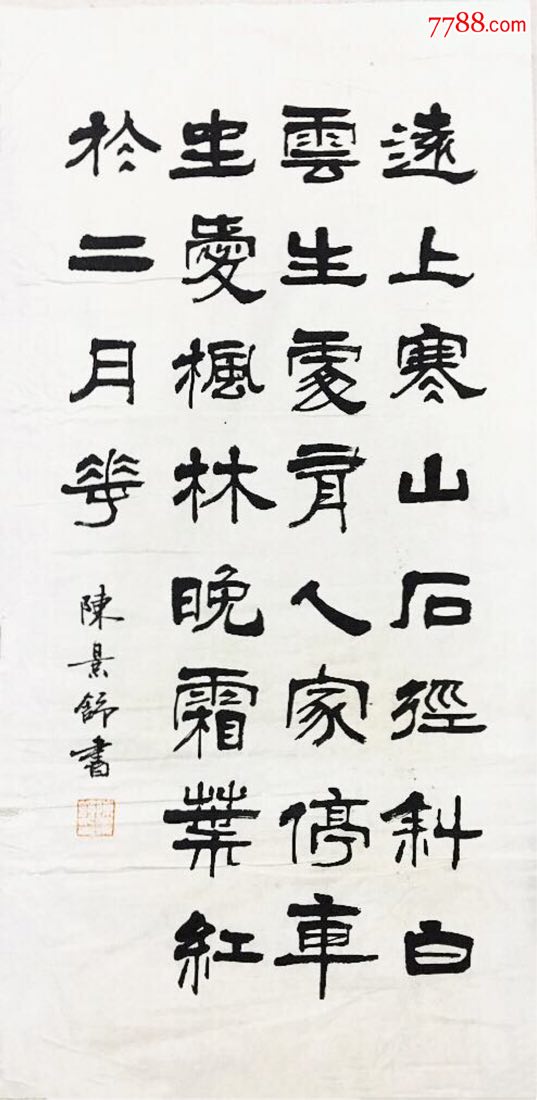 7788.com
遠上寒山石徑斜白
雲生處有人家停車
坐愛楓林晚霜葉紅
於二月花
陳景舒書